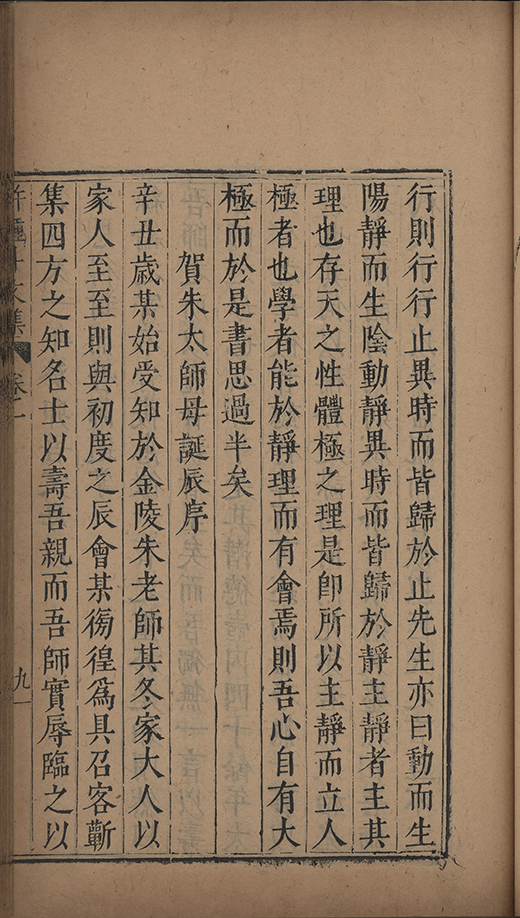 行則行行止異時而皆歸於止先生亦曰動而生
陽靜而生陰動靜異時而皆歸於靜主靜者主其
理也存天之性體極之理是卽所以主靜而立人
極者也學者能於靜理而有會焉則吾心自有大
極而於是書思過半矣
賀朱太師母誕辰序
辛丑歲某始受知於金陵朱老師其冬家大人以
家人至至則與初度之辰會某徬徨爲具召客蘄
集四方之知名士以壽吾親而吾師實辱臨之以
文集 卷一 九